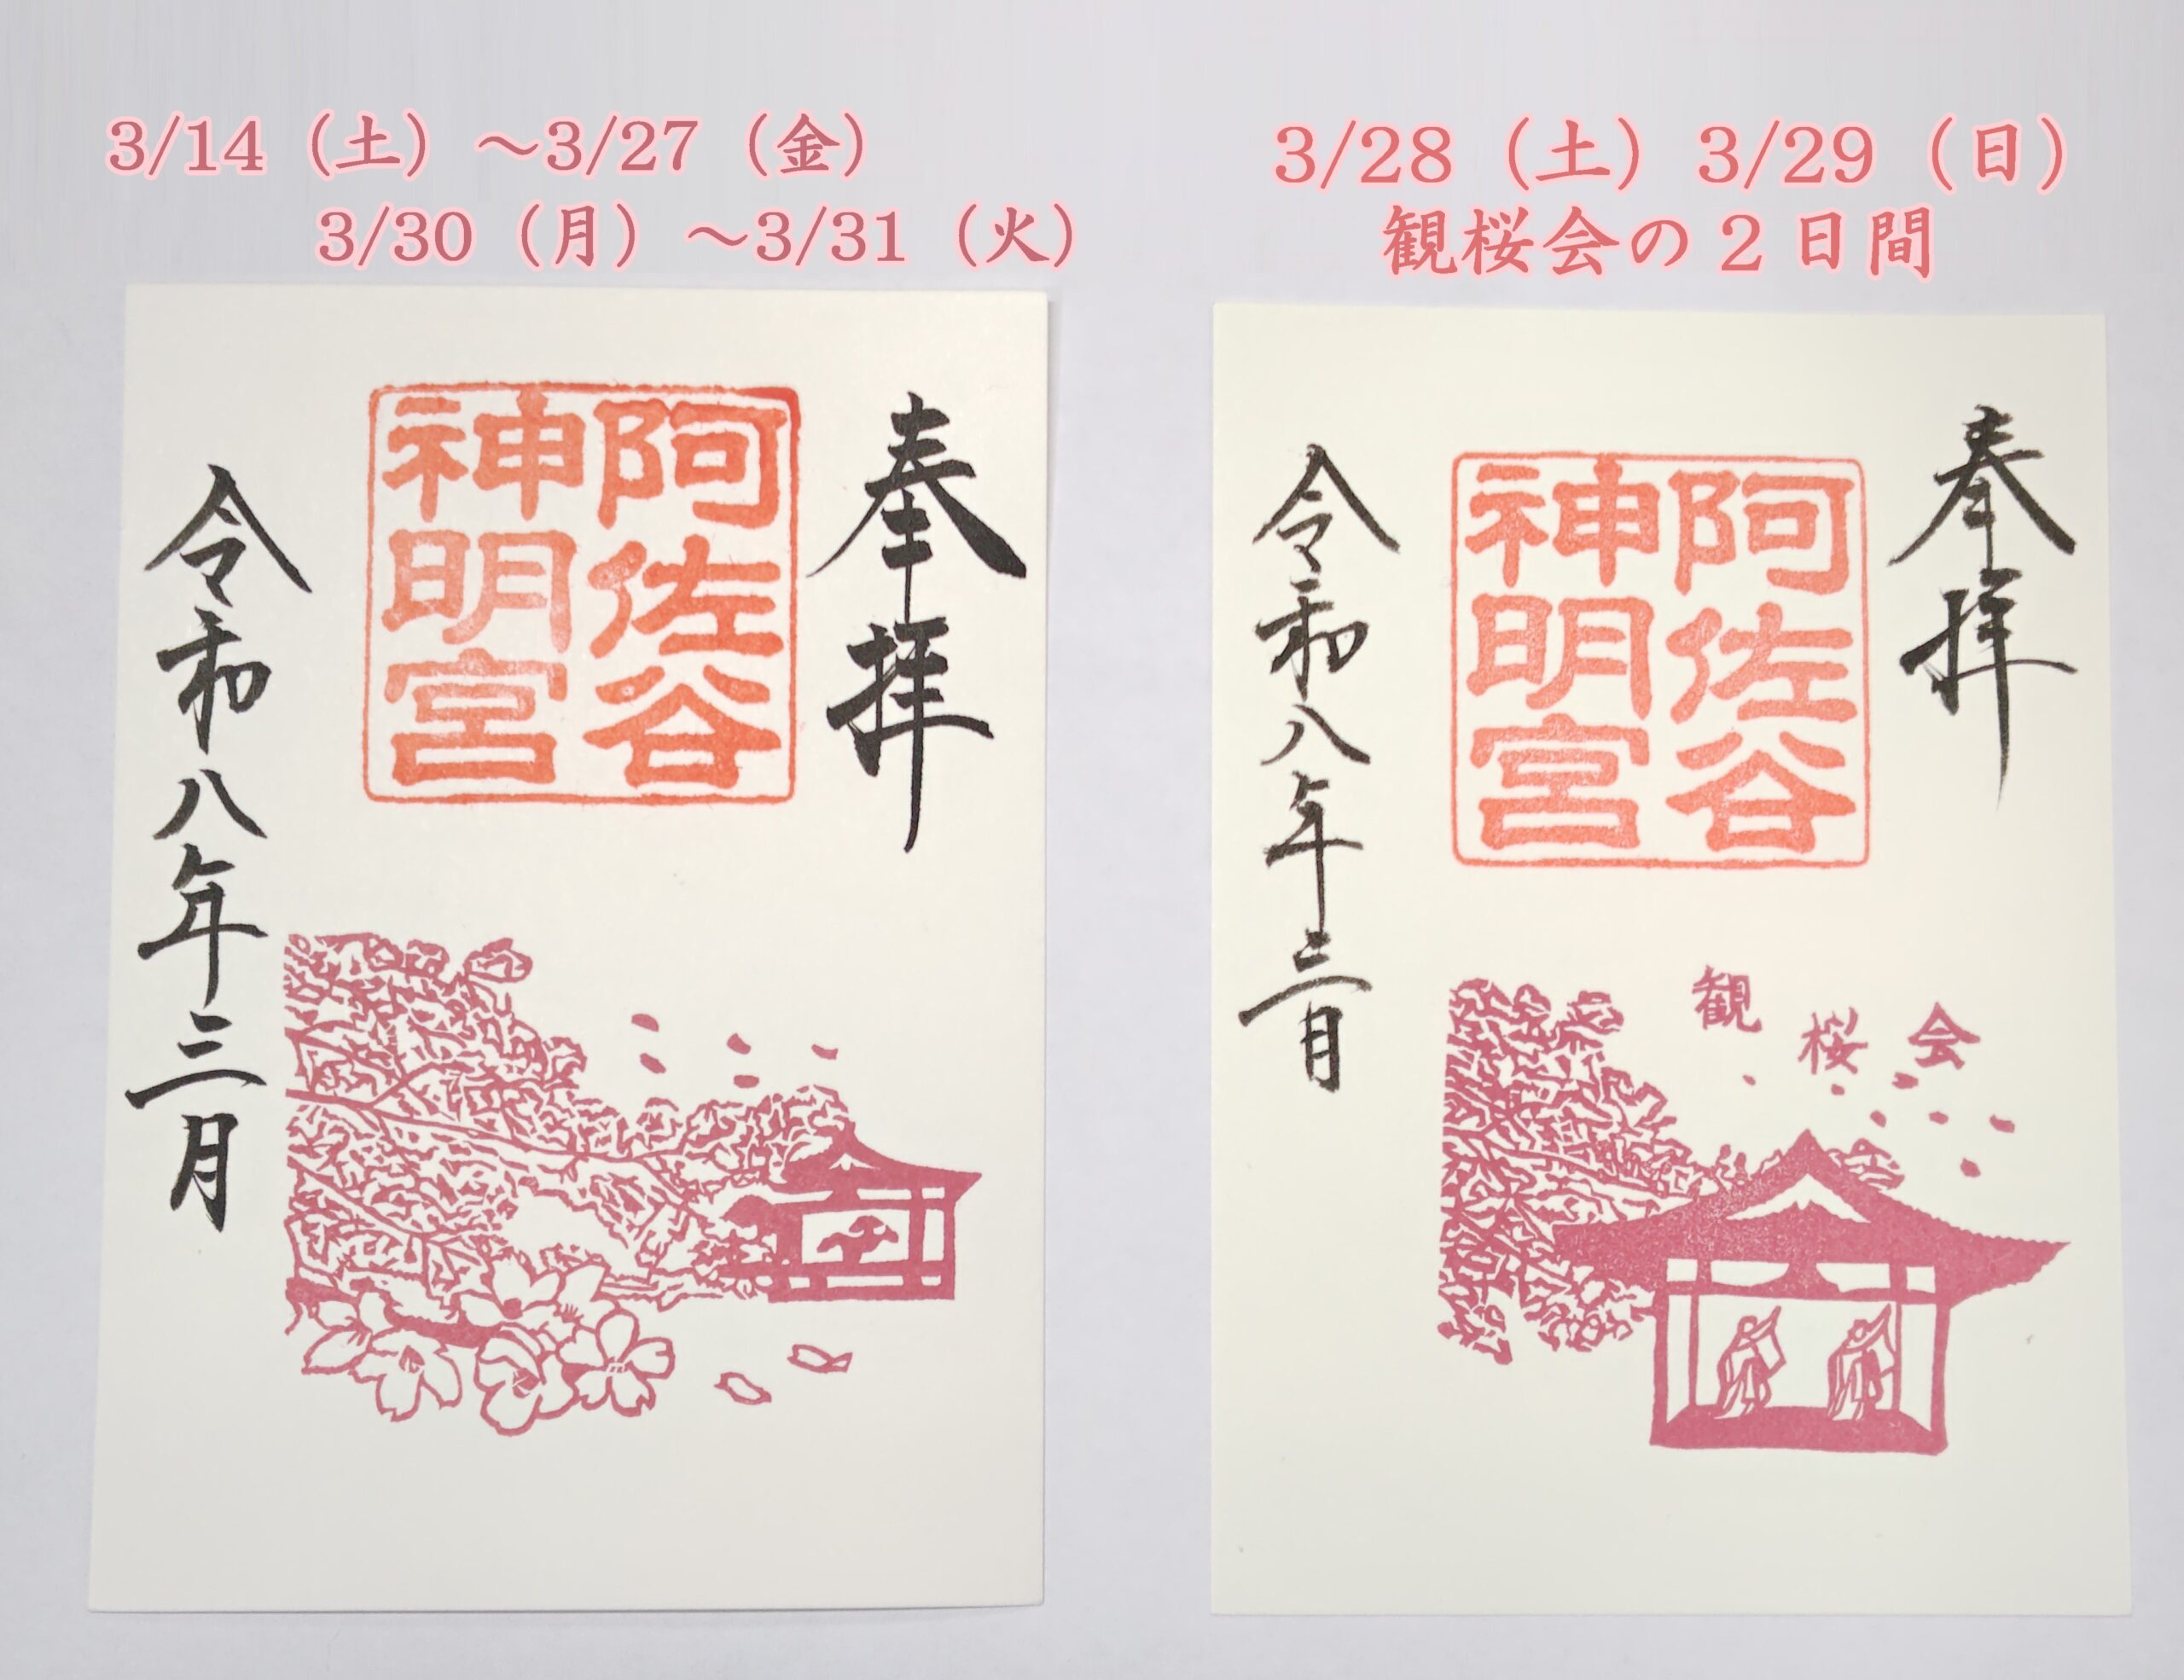 3/14（土）～3/27（金）
3/30（月）～3/31（火）
奉拝
阿佐谷
神明宮
令和八年三月
3/28（土）3/29（日）
観桜会の２日間
奉拝
阿佐谷
神明宮
令和八年三月
観桜会